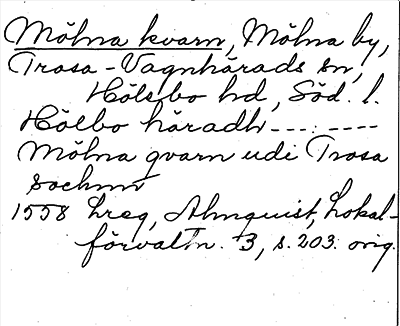 Mölna kvarn, Mölna by,
Trosa-Vagnhärads sn,
Hölebo hd, Söd. l.
Hölbo häradh---:----
Mölna qvarn udi Trosa
sochnn
1558 hreg, Almquist, Lokal-
förvaltn. 3, s. 203. orig.